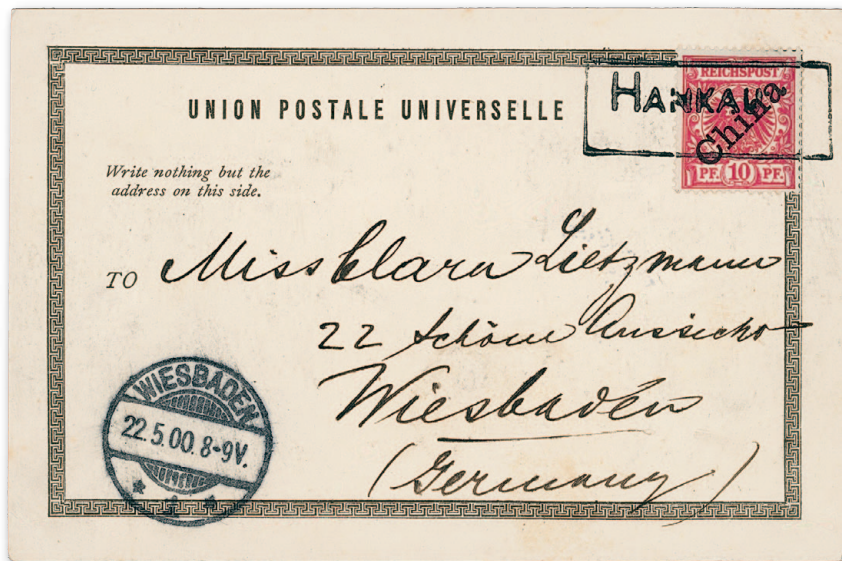 UNION POSTALE UNIVERSELLE
HANKAU
REICHSPOST
China
PF. 10 PF.
Write nothing but the
address on this side.
TO Miss Clara Lietzmann
22 Schöne Aussicht
Wiesbaden
(Germany)
WIESBADEN
22.5.00. 8-9V.